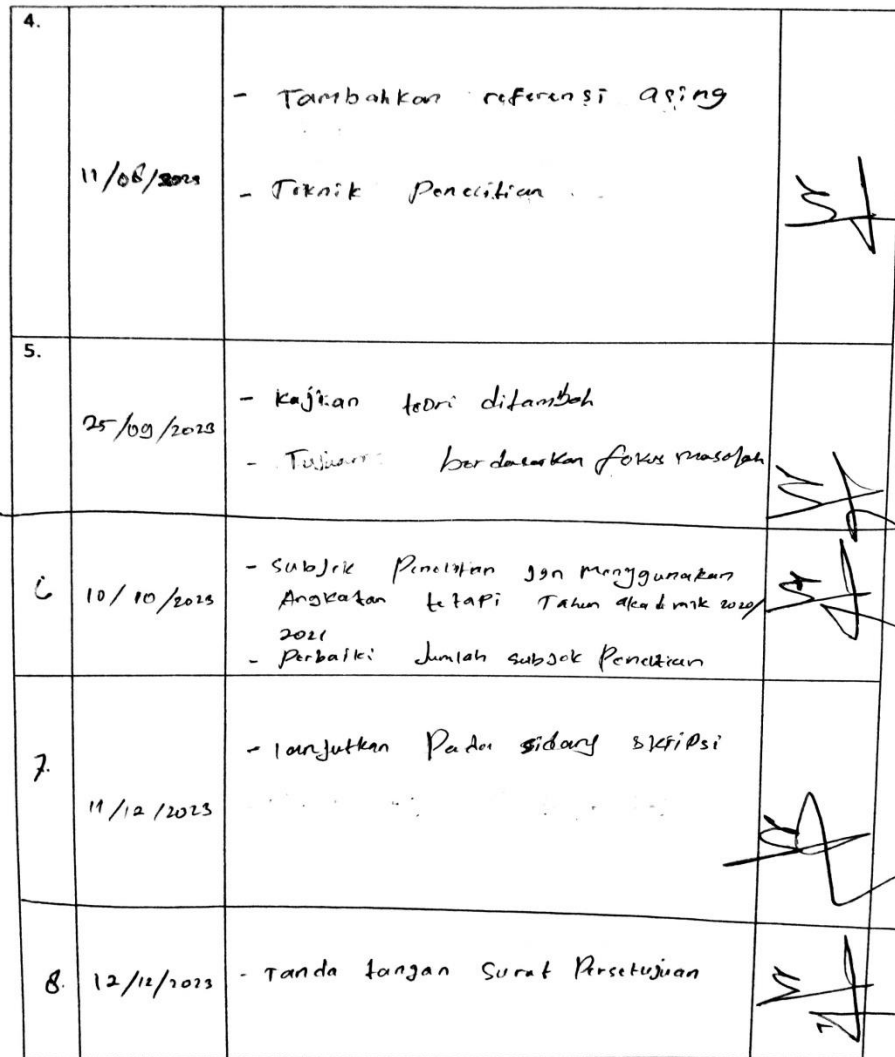 4.
- Tambahkan referensi asing
11/08/2023
- Teknik Penelitian
5.
- Kajian teori ditambah
25/09/2023
- Tujuan berdasarkan fokus masalah
6 10/10/2023 - Subjek Penelitian jgn menggunakan
Angkatan tetapi Tahun akademik 2020/
2021
- Perbaiki Jumlah subjek Penelitian
7.
- lanjutkan Pada sidang skripsi
11/12/2023
8. 12/12/2023 - Tanda tangan Surat Persetujuan